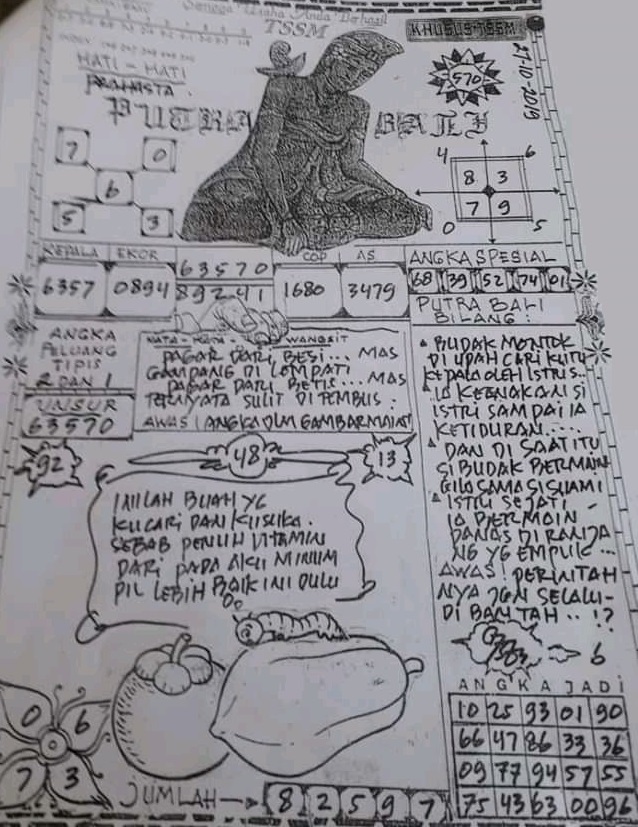 Semoga Usaha Anda Berhasil
TSSM
KHUSUS TSSM
27-10-2019
HATI - HATI
570
PUTRA BALI
7 0
6
5 3
4 6
8 3
7 9
0 5
KEPALA EKOR
6357 0894
63570
89241
COP AS
1680 3479
ANGKA SPESIAL
68 39 52 74 01
PUTRA BALI
BILANG :
ANGKA
PELUANG
TIPIS
2 DAN 1
UNSUR
63570
WANGSIT
PAGAR DARI BESI... MAS
GAMPANG DI LOMPATI
PAGAR DARI BETIS... MAS
TERNYATA SULIT DITEMBUS.
AWAS! ANGKA DLM GAMBAR MAIN!
BUDAK MONTOK
DI UPAH CARI KUTU
KEPALA OLEH ISTRI..
IA KEENAKAN SI
ISTRI SAMPAI IA
KETIDURAN....
DAN DI SAAT ITU
SI BUDAK BERMAIN
GILA SAMA SI SUAMI
ISTRI SEJATI -
IA BERMAIN
PANAS DI RANJA
NG YG EMPUK...
AWAS! PERINTAH
NYA JGN SELALU-
DI BANTAH..!?
6
92
48
13
INILAH BUAH YG
KUCARI DAN KUSUKA.
SEBAB PENUH VITAMIN
DARI PADA AKU MINUM
PIL LEBIH BAIK INI DULU
0 6
7 3
JUMLAH
8 2 5 9 7
ANGKA JADI
10 25 93 01 90
66 47 86 33 36
09 77 94 57 55
75 43 63 00 96